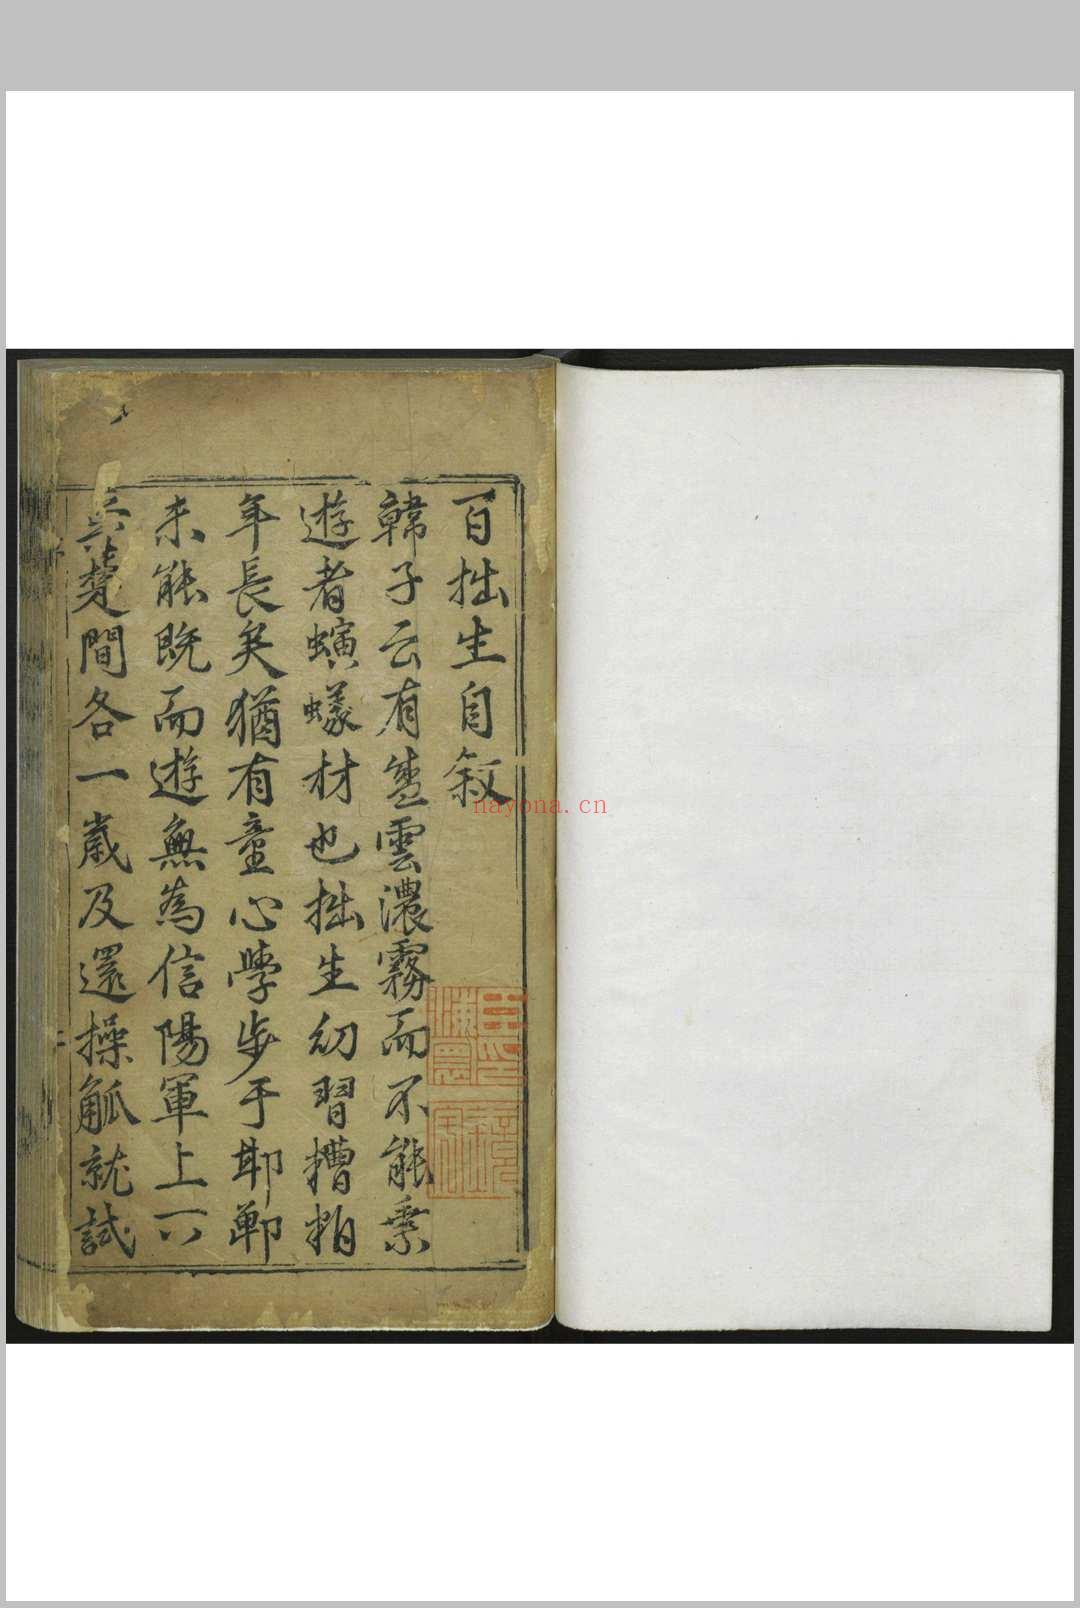 百拙生自叙
韓子云有盛雲濃霧而不能乘
遊者螾蟻材也拙生幼習糟粕
年長矣猶有童心學步于邯鄲
未能既而遊無為信陽軍上六
吳楚間各一歲及還操觚就試
nayona.cn